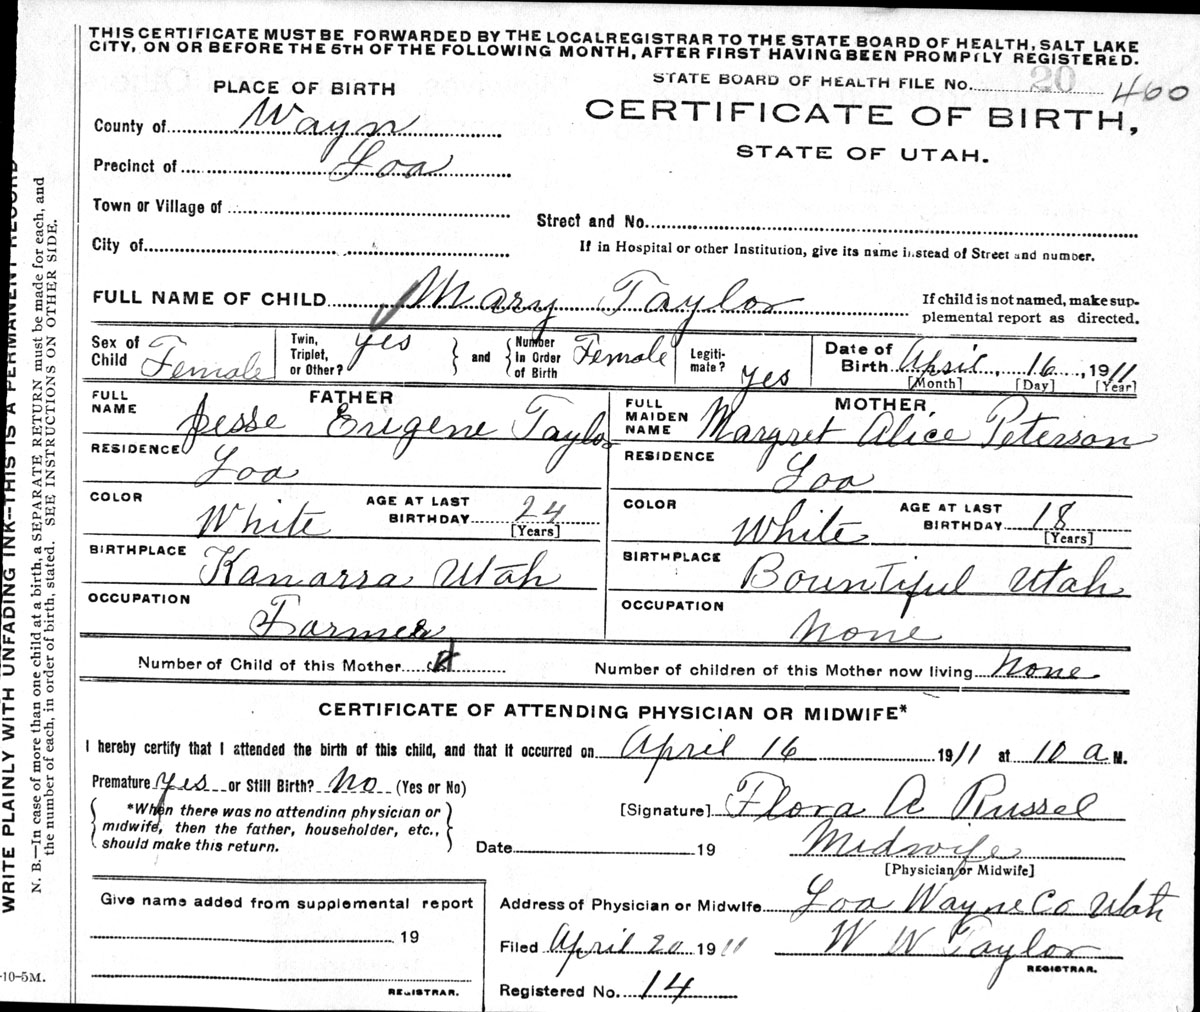 THIS CERTIFICATE MUST BE FORWARDED BY THE LOCAL REGISTRAR TO THE STATE BOARD OF HEALTH, SALT LAKE
CITY, ON OR BEFORE THE 5TH OF THE FOLLOWING MONTH, AFTER FIRST HAVING BEEN PROMPTLY REGISTERED.
STATE BOARD OF HEALTH FILE No. 20 400
PLACE OF BIRTH
CERTIFICATE OF BIRTH,
STATE OF UTAH.
County of Wayn
Precinct of Loa
Town or Village of
Street and No.
City of
If in Hospital or other Institution, give its name instead of Street and number.
FULL NAME OF CHILD Mary Taylor
If child is not named, make sup-
plemental report as directed.
Sex of Child Female Twin, Triplet, or Other? yes and Number In Order of Birth Female Legiti-mate? yes Date of Birth April, 16, 1911
[Month] [Day] [Year]
FATHER
FULL NAME Jesse Eregene Taylor
RESIDENCE Loa
COLOR White AGE AT LAST BIRTHDAY 24 [Years]
BIRTHPLACE Kanarra Utah
OCCUPATION Farmer
MOTHER,
FULL MAIDEN NAME Margret Alice Peterson
RESIDENCE Loa
COLOR White AGE AT LAST BIRTHDAY 18 [Years]
BIRTHPLACE Bountiful Utah
OCCUPATION None
Number of Child of this Mother
Number of children of this Mother now living None
CERTIFICATE OF ATTENDING PHYSICIAN OR MIDWIFE*
I hereby certify that I attended the birth of this child, and that it occurred on April 16 1911 at 10 a M.
Premature yes or Still Birth? No (Yes or No)
*When there was no attending physician or
midwife, then the father, householder, etc.,
should make this return.
[Signature] Flora A Russel
Date 19
Midwife
[Physician or Midwife]
Give name added from supplemental report
19
REGISTRAR.
Address of Physician or Midwife Loa Wayne Co Utah
Filed April 20 1911 W W Taylor
REGISTRAR.
Registered No. 14
WRITE PLAINLY WITH UNFADING INK--THIS IS A PERMANENT RECORD
N. B.—In case of more than one child at a birth, a SEPARATE RETURN must be made for each, and
the number of each, in order of birth, stated. SEE INSTRUCTIONS ON OTHER SIDE.
-10-5M.